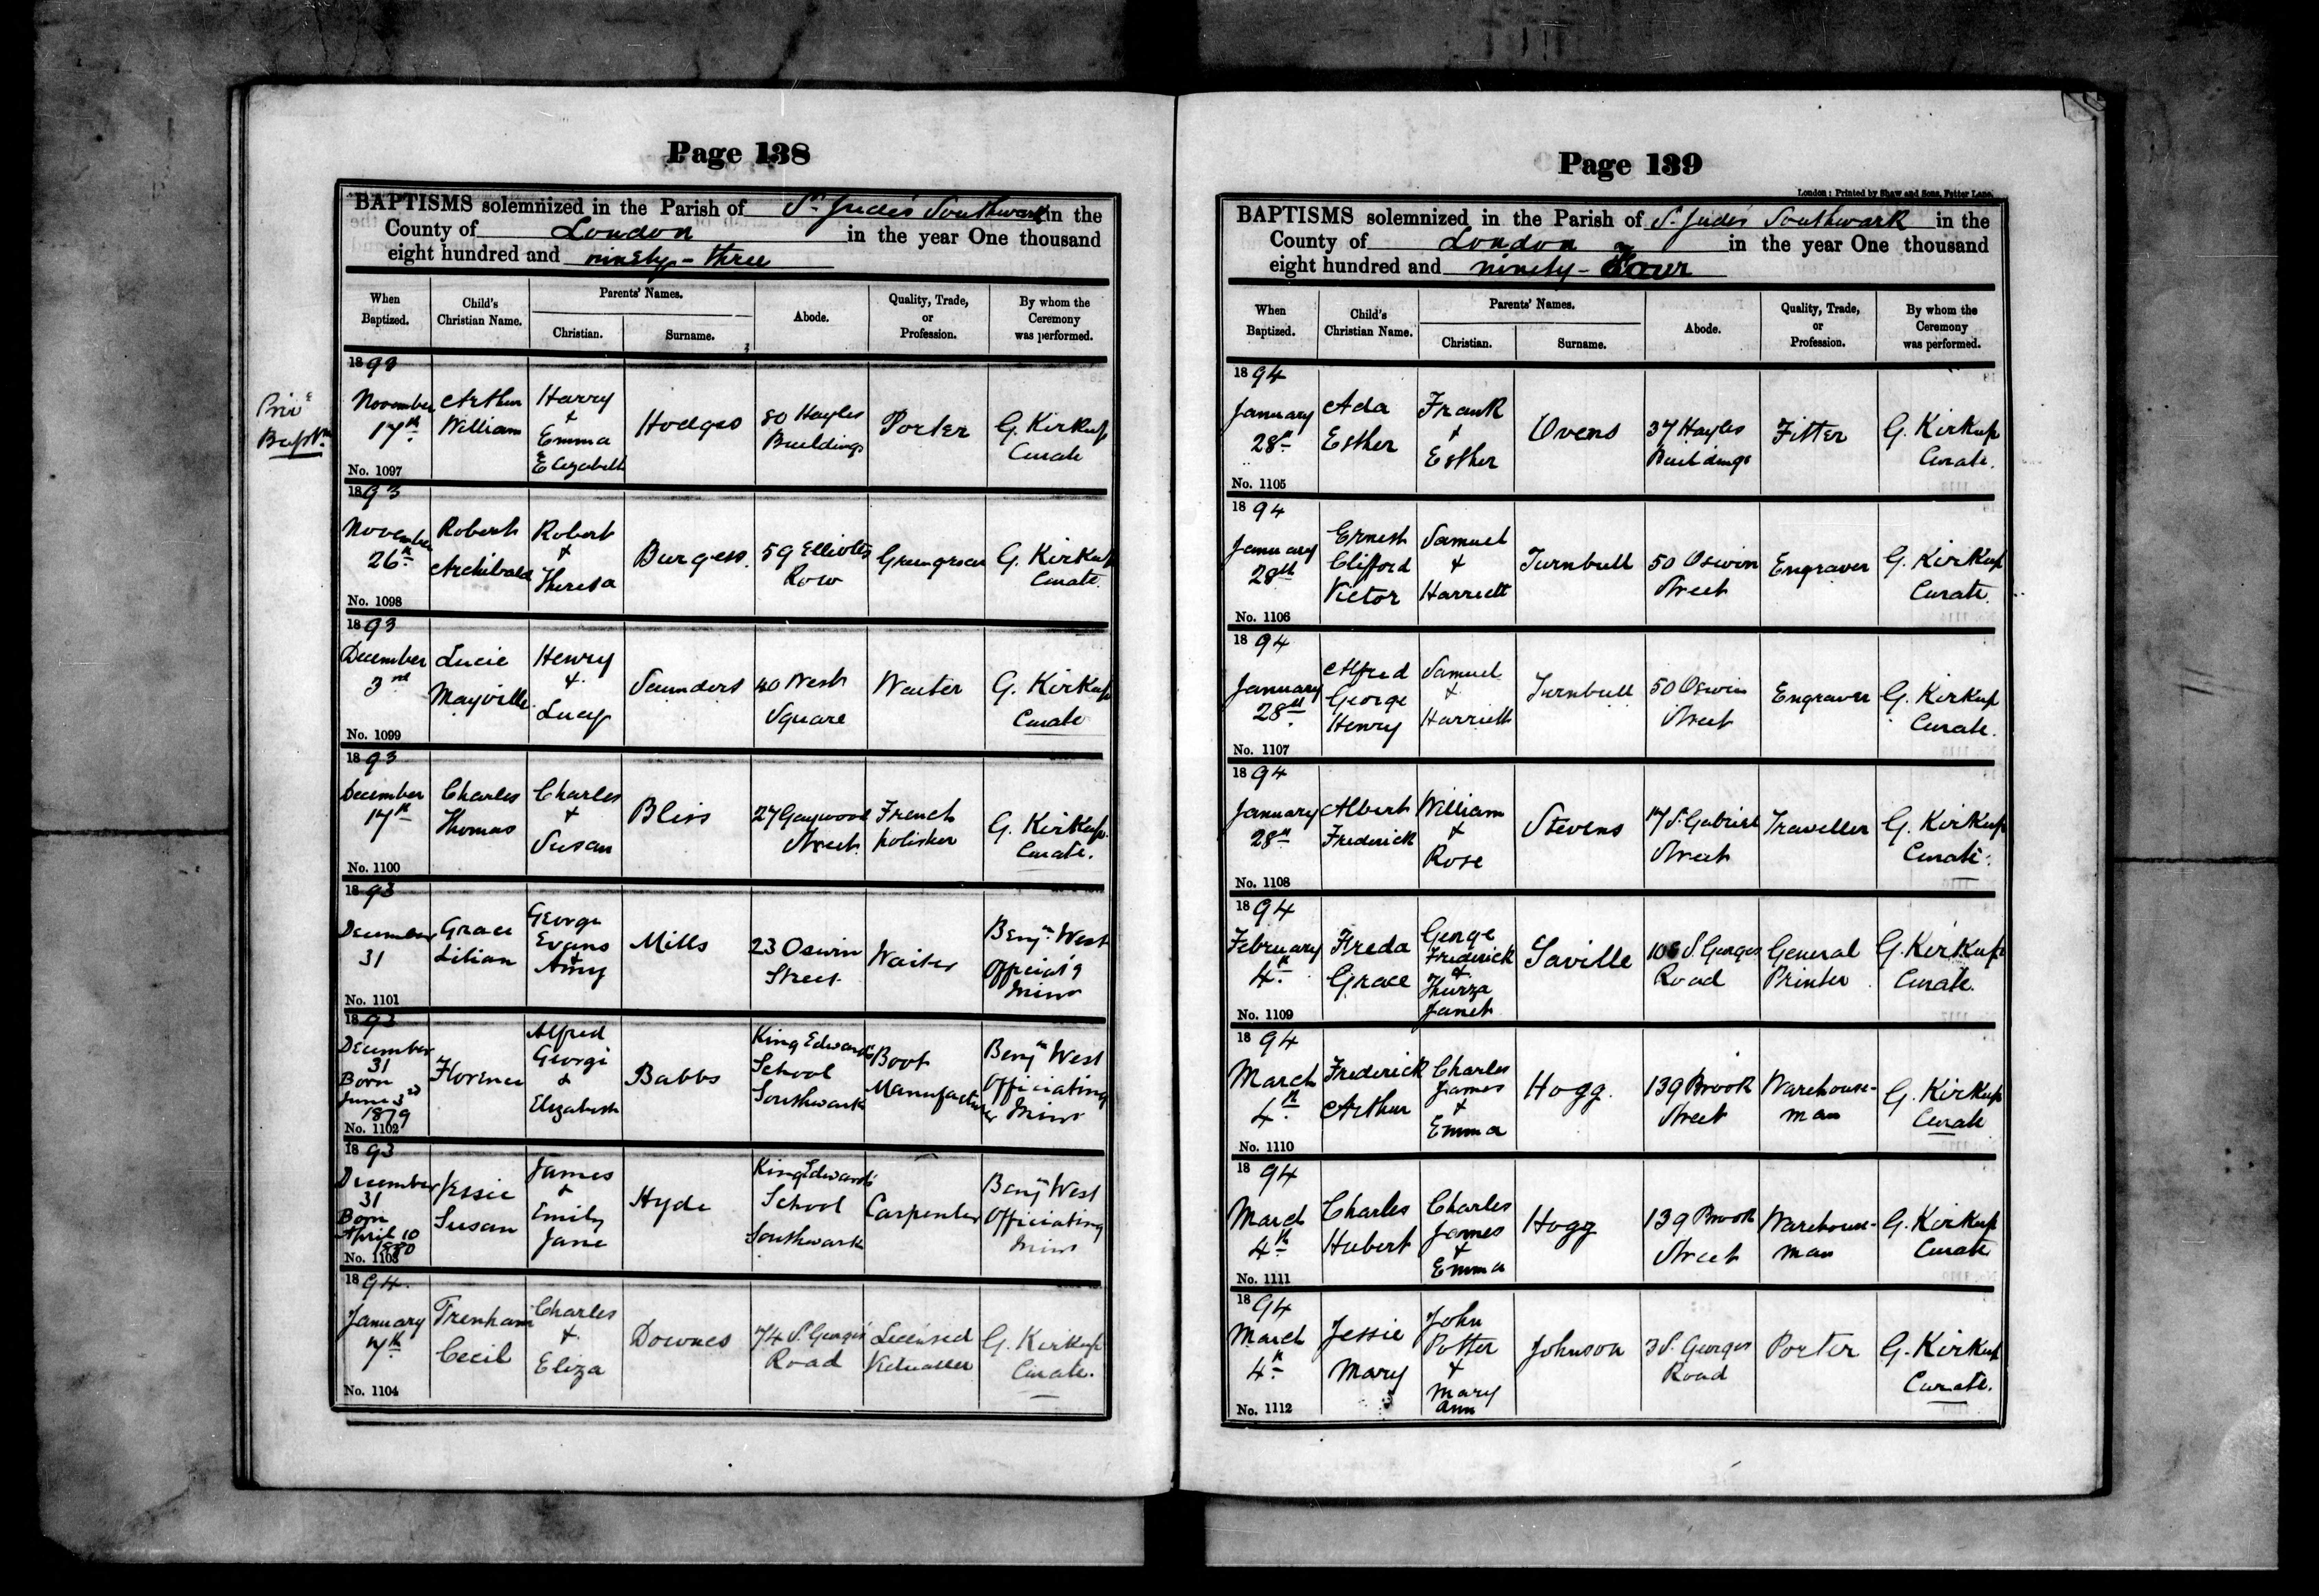 Page 138
BAPTISMS solemnized in the Parish of St. Jude's Southwark in the
County of London in the year One thousand
eight hundred and ninety-three
When Baptized. Child's Christian Name. Parents' Names. Christian. Surname. Abode. Quality, Trade, or Profession. By whom the Ceremony was performed.
Priv.
Baptm.
1893
November 17th Arthur William Harry & Emma Elizabeth Hodges 80 Hayles Buildings Porter G. Kirkup Curate
No. 1097
1893
November 26th Robert Archibald Robert & Theresa Burgess. 59 Elliotts Row Greengrocer G. Kirkup Curate
No. 1098
1893
December 3rd Lucie Mayville Henry & Lucy Saunders 40 West Square Waiter G. Kirkup Curate
No. 1099
1893
December 17th Charles Thomas Charles & Susan Bliss 27 Gaywood Street French polisher G. Kirkup. Curate.
No. 1100
1893
December 31 Grace Lilian George Evans & Amy Mills 23 Oswin Street Waiter Benjn. West Officiat'g Minr
No. 1101
1893
December 31 Born June 3rd 1879 Florence Alfred George & Elizabeth Babbs King Edward's School Southwark Boot Manufacturer Benjn West Officiating Minr
No. 1102
1893
December 31 Born April 10 1880 Jessie Susan James & Emily Jane Hyde King Edward's School Southwark Carpenter Benjn West Officiating Minr
No. 1103
1894.
January 7th Trenham Cecil Charles & Eliza Downes 74 St. George's Road Licensed Victualler G. Kirkup Curate.
No. 1104
Page 139
London: Printed by Shaw and Sons, Fetter Lane.
BAPTISMS solemnized in the Parish of St. Jude's Southwark in the
County of London in the year One thousand
eight hundred and ninety-Four
When Baptized. Child's Christian Name. Parents' Names. Christian. Surname. Abode. Quality, Trade, or Profession. By whom the Ceremony was performed.
1894
January 28th Ada Esther Frank & Esther Ovens 37 Hayles Buildings Fitter G. Kirkup Curate.
No. 1105
1894
January 28th Ernest Clifford Victor Samuel & Harriett Turnbull 50 Oswin Street Engraver G. Kirkup Curate.
No. 1106
1894
January 28th Alfred George Henry Samuel & Harriett Turnbull 50 Oswin Street Engraver G. Kirkup Curate.
No. 1107
1894
January 28th Albert Frederick William & Rose Stevens 17 St. Gabriel Street Traveller G. Kirkup Curate.
No. 1108
1894
February 4th Freda Grace George Frederick & Thurza Janet Saville St. Georges Road General Printer G. Kirkup Curate.
No. 1109
1894
March 4th Frederick Arthur Charles James & Emma Hogg. 139 Brook Street Warehouse-man G. Kirkup Curate
No. 1110
1894
March 4th Charles Hubert Charles James & Emma Hogg 139 Brook Street Warehouse-man G. Kirkup Curate
No. 1111
1894
March 4th Jessie Mary John Potter & Mary Ann Johnson 3 St. Georges Road Porter G. Kirkup Curate.
No. 1112